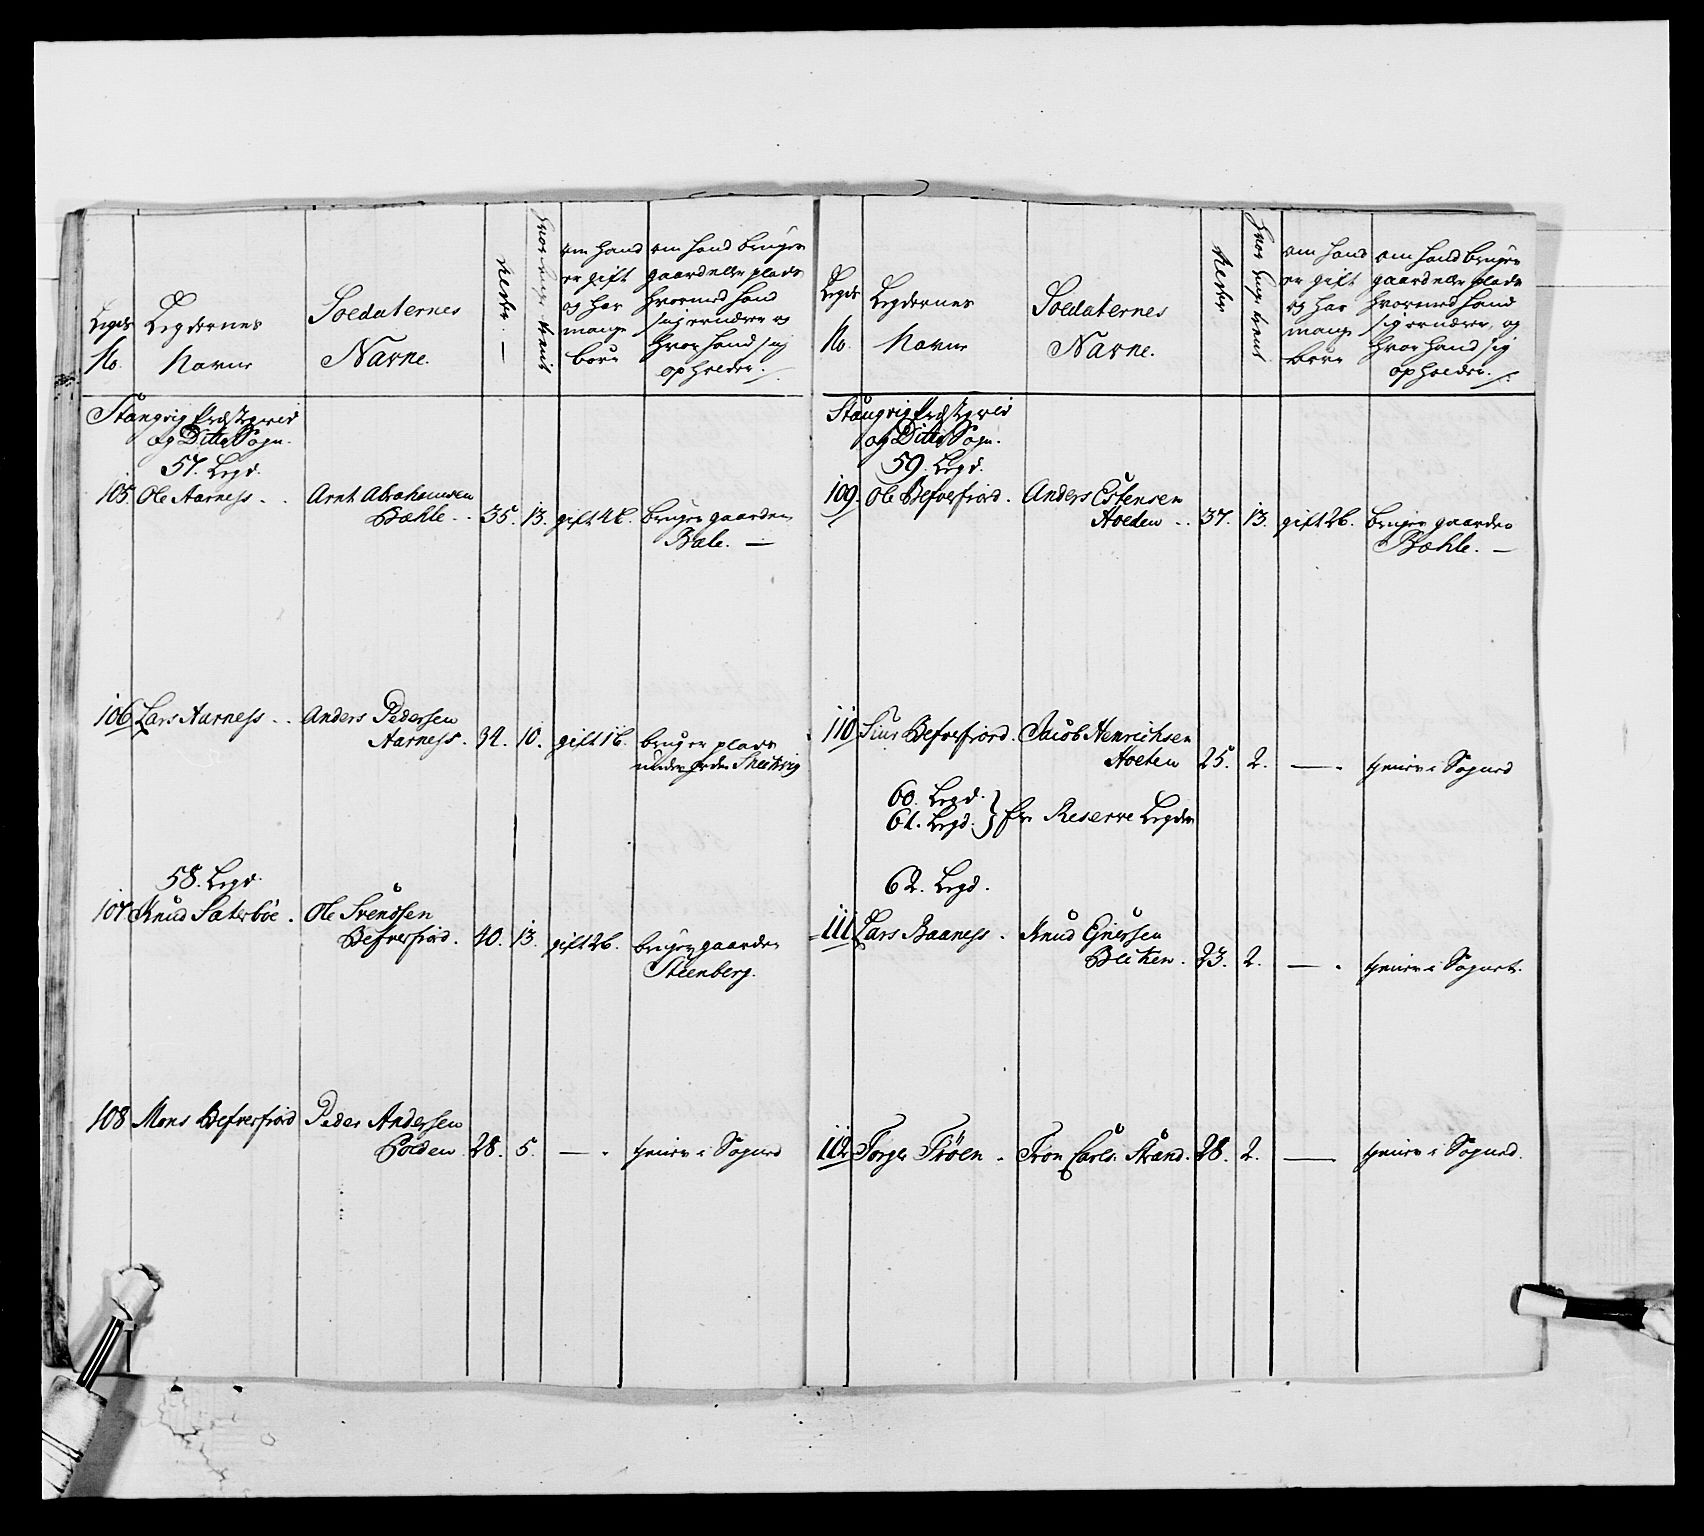 Legds
No.
Legdernes
Navne
Soldaternes
Navne.
Alder.
hvor lenge tient
om hand
er gift
og har
mange
børn
om hand bruger
gaard eller plads
hvormed hand
sig ernærer og
hvor hand sig
opholder.
Stangvig Præstegield
og Ditto Sogn.
57. Legd.
105. Ole Aarness. Arnt Abrahamsen
Bæhle. 35. 13. gift 4 b. bruger gaarden
Bæle.
106 Lars Aarness. Anders Pedersen
Aarness. 34. 10. gift 1 b. bruger plads
under
58. Legd.
107 Knud Saterbøe. Ole Svendsen
Befverfiord. 40. 13. gift 2 b. bruger gaarden
Steenberg.
108 Mons Befverfiord Peder Andersen
Holden. 28. 5. — tiener i Sogned
Legds
No.
Legdernes
Navne
Soldaternes
Navne.
Alder
hvor lenge tient
om hand
er gift
og har
mange
børn
om hand bruger
gaard eller plads
hvormed hand
sig ernærer, og
hvor hand sig
opholder.
Stangvig Præstegield
og Ditto Sogn.
59. Legd.
109. Ole Befverfiord. Anders Estensen
Holten. 37. 13. gift 2 b. bruger gaarden
Bæhle.
110 Siur Befverfiord. Jacob Henrichsen
Holten 25. 2. — tiener i Sogned
60. Legd.
61. Legd. } er Reserve Legder
62. Legd.
111 Lars Baaness. Knud Ejnersen
Bliken. 23. 2. — tiener i Sognet.
112 Torger Trøen. Tron Carls. Strand. 28. 2. — tiener i Sogned.